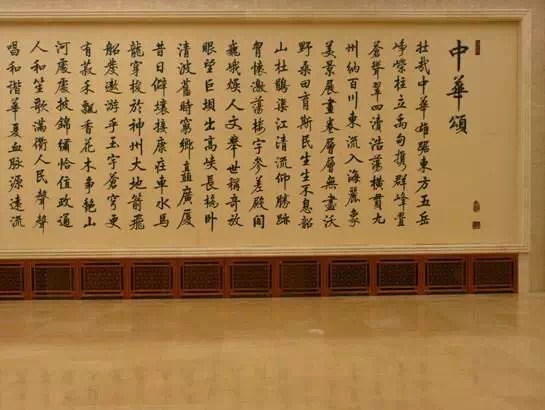 中華頌
壯哉中華雄踞東方五岳
崢嶸柱立禹甸携群峰疊
薈聳翠四瀆浩蕩橫貫九
州納百川東流入海麗象
美景展畫卷層層無盡沃
野桑田育斯民生生不息韶
山杜鵑渠江清流仰勝跡
懷激蕩樓宇參差殿閣
巍峨煥人文舉世稱奇放
眼望巨壩出高峽長橋卧
清波舊時窮鄉矗廣厦
昔日僻壤接康莊車水馬
龍穿梭於神州大地箭飛
船度遨游乎玉宇蒼穹更
有菽禾飄香花木争艷山
河處處披錦綉恰值政通
人和笙歌滿衢人民聲聲
唱和諧華夏血脉源遠流